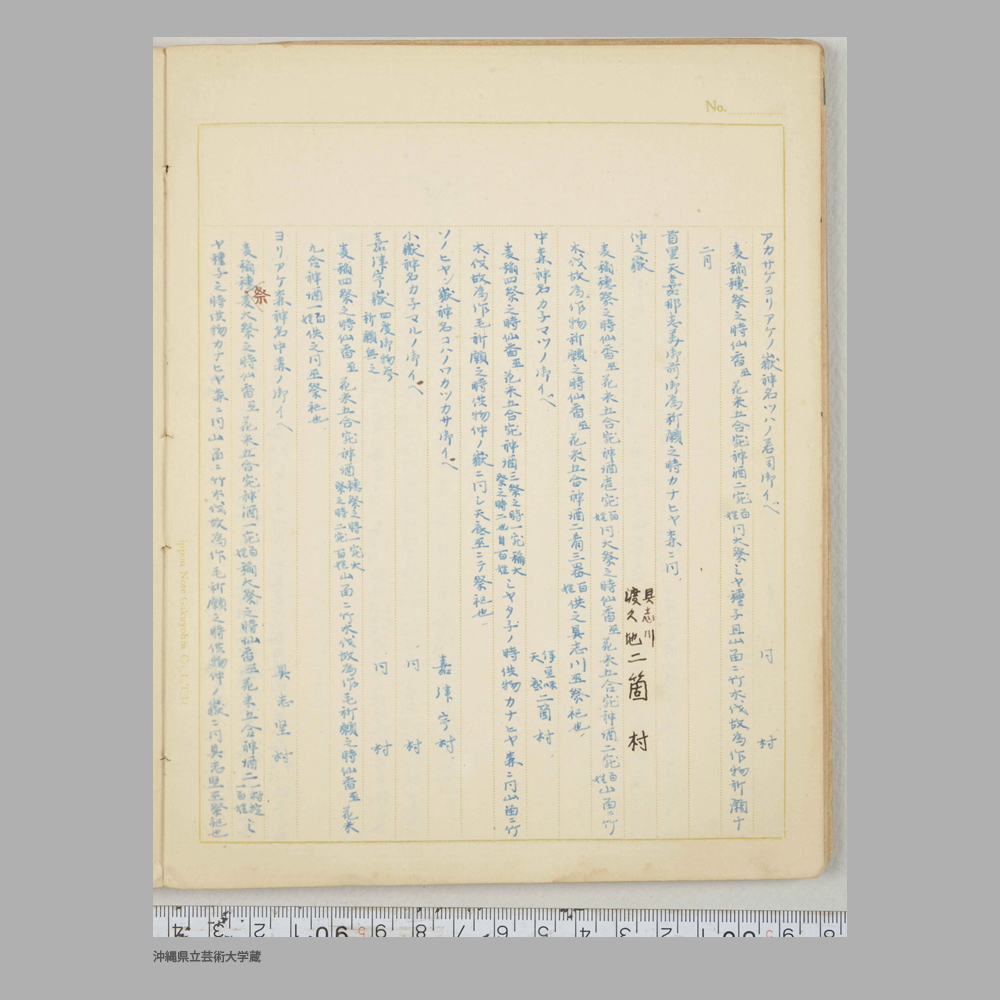 No.
アカサケヨリアケノ嶽神名ツハノ若司御イベ 同 村
麦稲穂祭之時仙香五花米五合宛神酒二宛百姓同大祭ミヤ種子且山留ニ竹木伐故為作物祈願
二月
首里天嘉那志美御前御為祈願之時カナヒヤ森ニ同
仲之嶽 具志川 渡久地 二箇村
麦稲穂祭之時仙香五花米五合宛神酒壱宛百姓同大祭之時仙香五花米五合宛神酒二宛百姓山留ニ竹
木伐故為作物祈願之時仙香五花米五合神酒二百姓供之具志川五祭祀也
中森神名カ子マツノ御イベ 伊豆味 天底 二箇村
麦稲四祭之時仙香五花米五合宛神酒三祭之時一宛稲大祭之時二百姓ミヤタ子ノ時供物カナヒヤ森ニ同山留ニ竹
木伐故為作毛祈願之時供物仲ノ嶽ニ同シ天底五ニテ祭祀也
ソノヒヤン嶽神名コハノワカツカサ御イベ 嘉津宇村
小嶽神名カ子マルノ御イベ 同 村
嘉津宇嶽 四度御物参祈願無之 同 村
麦稲四祭之時仙香五花米五合宛神酒穂祭之時一宛大祭之時二宛百姓山留ニ竹木伐故為作毛祈願之時仙香五花米
九合神酒一百姓供之同五祭祀也
ヨリアケ森神名中森ノ御イベ 具志堅村
祭
麦稲穂大祭之時仙香五花米五合宛神酒一宛百姓稲大祭之時仙香五花米五合神酒二
ヤ種子之時供物カナヒヤ森ニ同山留ニ竹木伐故為作毛祈願之時供物仲ノ嶽ニ同具志堅五祭祀也
沖縄県立芸術大学蔵